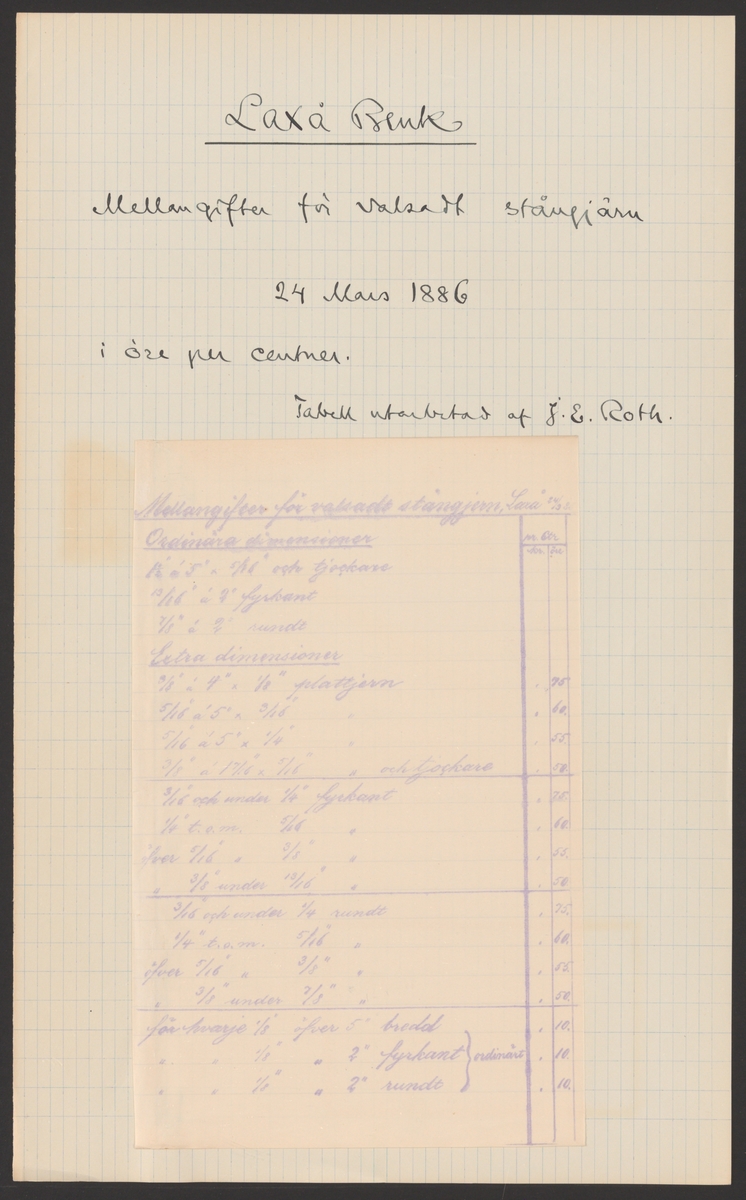 Laxå Bruk
Mellangifter för valsadt stångjärn
24 Mars 1886
i öre per centner.
Tabell utarbetad af J. E. Roth.
Mellangifter för valsadt stångjern, Laxå
Ordinära dimensioner
pr ctr
kr. öre
à 5" × 5/16" och tjockare
13/16" à 2" fyrkant
7/8" à 2" rundt
Extra dimensioner
à 4" × 1/8" plattjern „ 75.
5/16 à 5" × 3/16" „ „ 60.
5/16 à 5" × 1/4" „ „ 55.
„ och tjockare „ 50.
3/16" och under 1/4" fyrkant „ 75.
1/4" t.o.m. 5/16" „ „ 60.
öfver 5/16" „ 3/8" „ „ 55.
„ 3/8" under 13/16" „ „ 50
3/16" och under 1/4 rundt „ 75.
1/4" t.o.m. 5/16" „ „ 60.
öfver 5/16" „ 3/8" „ „ 55.
„ 3/8" under 7/8" „ „ 50.
för hvarje 1/8" öfver 5" bredd „ 10.
„ „ 1/8" „ 2" fyrkant } ordinärt „ 10.
„ „ 1/8" „ 2" rundt „ 10.